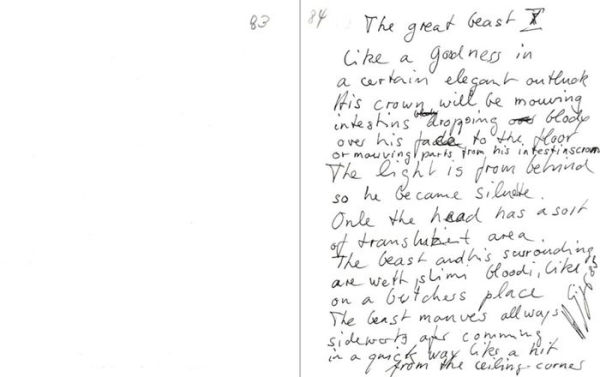 83
84
The great beast X
Like a Goodness in
a certain elegant outluok
His crown will be mouving
intestins bloody dropping bloody
over his face to the floor
or mouving parts from his intestinscrown
The light is from behind
so he became Siluete.
Onle the head has a sort
of translutient area.
The beast and his surrounding
are wett slimi bloodi, like
on a butchess place
The beast manves allways
sideworts comming
in a quick way like a hit
from the ceiling-corner